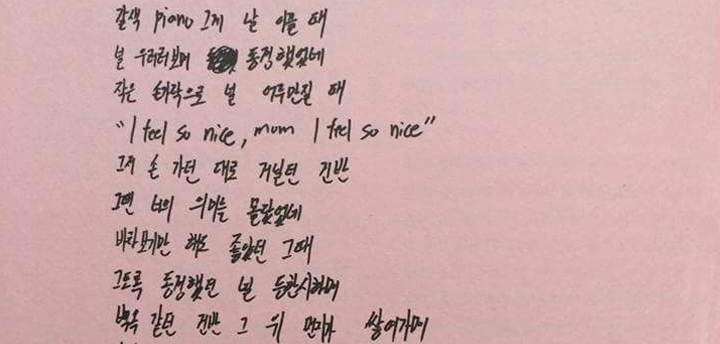 갈색 piano 그게 날 이끌 때
널 우러러보며 동정했었네
작은 손가락으로 널 어루만질 때
"I feel so nice, mom I feel so nice"
그저 손 가던 대로 거닐던 건반
그땐 너의 의미를 몰랐었네
바라보기만 해도 좋았던 그때
그토록 동정했던 널 등한시하며
백옥 같던 건반 그 위 먼지가 쌓여가며